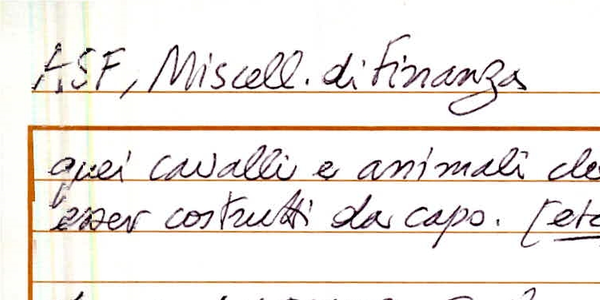 ASF, Miscell. di Finanza
quei cavalli e animali che
esser costrutti da capo. [etc